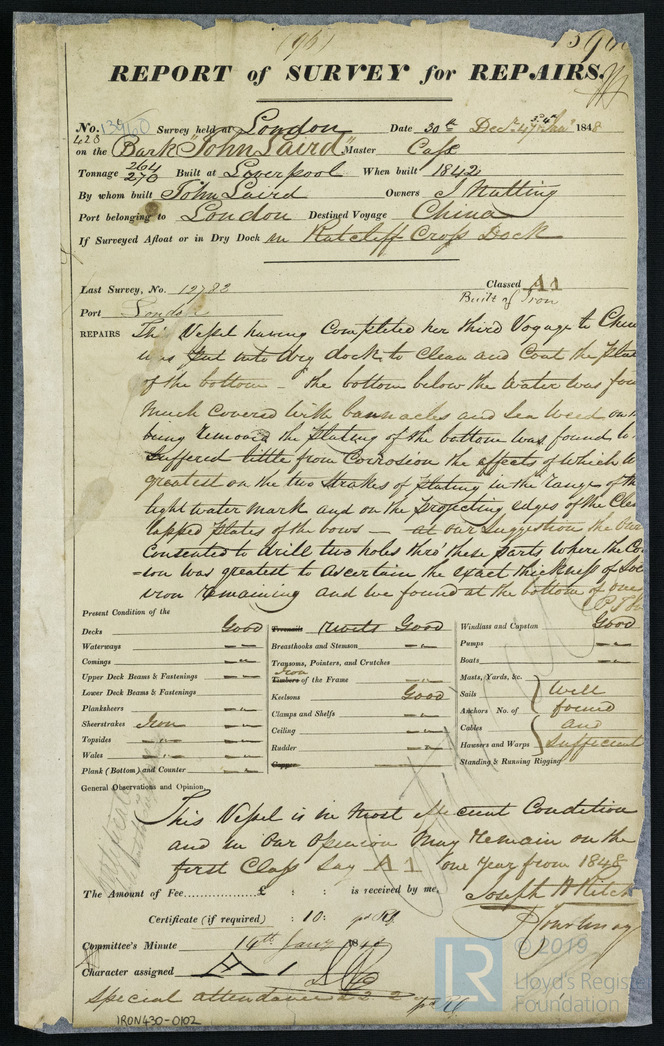 (96)
REPORT of SURVEY for REPAIRS.
No. 13960 Survey held at London Date 30th Decr 47 & 3. 4th Jany 1848
428
on the Bark "John Laird" Master Cass
Tonnage 264 270 Built at Liverpool When built 1842
By whom built John Laird Owners J Nutting
Port belonging to London Destined Voyage China
If Surveyed Afloat or in Dry Dock in Ratcliff Cross Dock
Last Survey, No. 12783 Classed A1
Built of Iron
Port London
REPAIRS This Vessel having Completed her third Voyage to
was put into dry dock to Clean and Coat the
of the bottom – The bottom below the water was
much Covered with bannacles and Sea Weed on
being removed the plating of the bottom was found
Suffered little from Corrosion the effects of which
greatest on the two Strakes of plating in the range of the
light water mark and on the projecting edges of the
lapped plates of the bows — at our Suggestion the
Consented to drill two holes thro' these parts where the
=ion was greatest to ascertain the exact thickness of
iron remaining and we found at the bottom of one
Present Condition of the
Decks Good
Waterways
Comings
Upper Deck Beams & Fastenings
Lower Deck Beams & Fastenings
Planksheers
Sheerstrakes Iron
Topsides
Wales
Plank (Bottom) and Counter
Treenails Rivets Good
Breasthooks and Stemson
Transoms, Pointers, and Crutches
Iron
Timbers of the Frame
Keelsons Good
Clamps and Shelfs
Ceiling
Rudder
Copper
Windlass and Capstan Good
Pumps
Boats
Masts, Yards, &c.
Sails Well
Anchors No. of found
Cables and
Hawsers and Warps Sufficient
Standing & Running Rigging
General Observations and Opinion,
This Vessel is in most efficient Condition
and in our Opinion may remain on the
first Class Say A1 one Year from 1848
The Amount of Fee............... £ : : is received by me,
Joseph H Ritch
Certificate (if required) : 10:
Committee's Minute 14th Jany 1848
Character assigned A 1
Special attendance £2 2
IRON430-0102
LR
© 2019
Lloyd's Register
Foundation